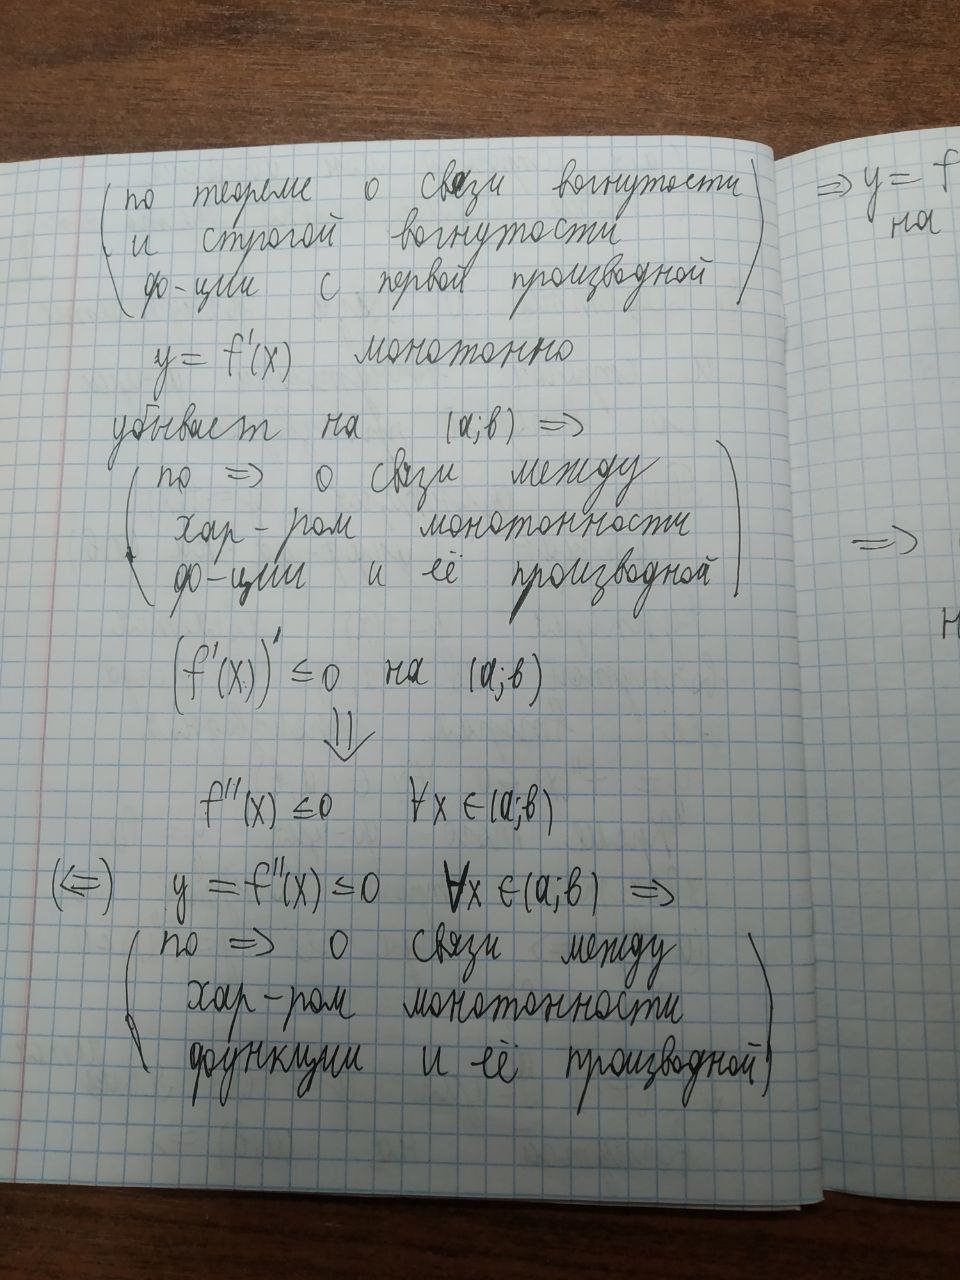 (по теореме о связи вогнутости
и строгой вогнутости
ф-ции с первой производной)
y = f'(x) монотонно
убывает на (a;b) ⇒
(по ⇒ о связи между
хар-ром монотонности
ф-ции и её производной)
(f'(x))' ≤ 0 на (a;b)
⇓
f''(x) ≤ 0 ∀x ∈ (a;b)
(⇐) y = f''(x) ≤ 0 ∀x ∈ (a;b) ⇒
(по ⇒ о связи между
хар-ром монотонности
функции и её производной)
⇒ y = f
на
⇒